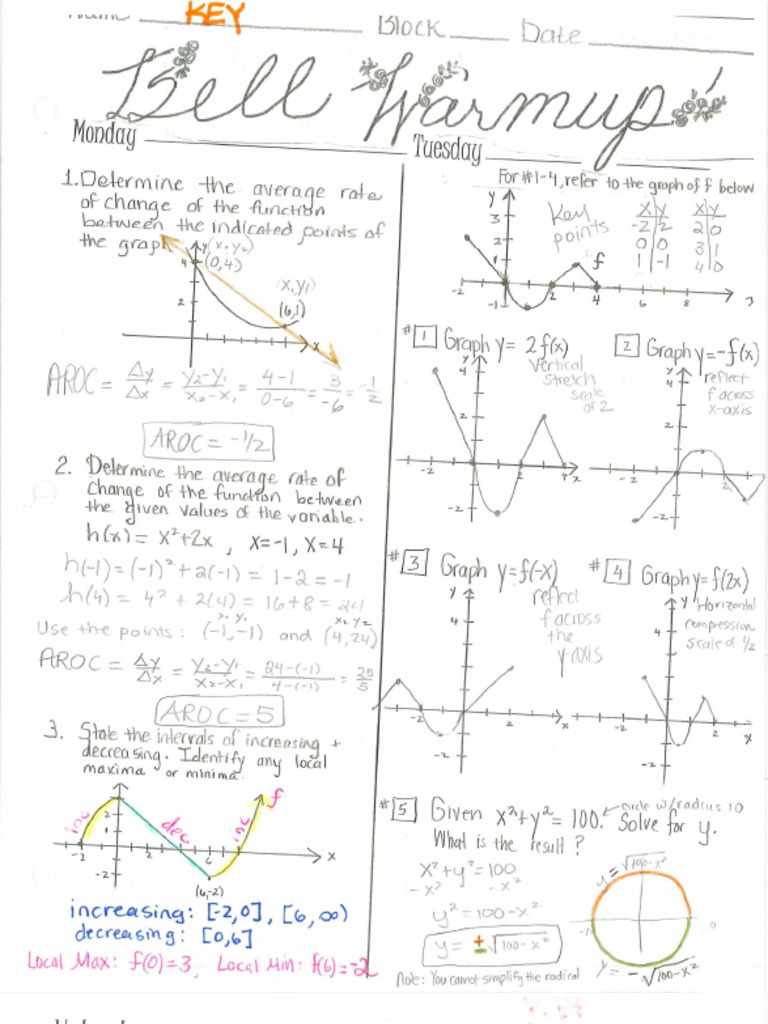 Name KEY Block Date
Bell Warmup!
Monday
1. Determine the average rate
of change of the function
between the indicated points of
the graph
y (x2, y2)
4 (0,4)
(x, y1)
(6,1)
2
x
AROC = Δy/Δx = y2-y1/x2-x1 = 4-1/0-6 = 3/-6 = -1/2
AROC = -1/2
2. Determine the average rate of
change of the function between
the given values of the variable.
h(x) = x²+2x , x=-1, x=4
h(-1) = (-1)² + 2(-1) = 1-2 = -1
h(4) = 4² + 2(4) = 16+8 = 24
x1 y1 x2 y2
Use the points: (-1,-1) and (4,24)
AROC = Δy/Δx = y2-y1/x2-x1 = 24-(-1)/4-(-1) = 25/5
AROC = 5
3. State the intervals of increasing +
decreasing. Identify any local
maxima or minima.
f
inc dec inc
2
-2 2 6 x
-2
(6,-2)
increasing: [-2,0], [6,∞)
decreasing: [0,6]
Local Max: f(0)=3, Local Min: f(6)=-2
Tuesday
For #1-4, refer to the graph of f below
y
3
2
1
-1
-2 2 4 6 8
f
Key
points
x y x y
-2 2 2 0
0 0 3 1
1 -1 4 0
# 1 Graph y= 2f(x)
vertical
stretch
scale
of 2
y
4
2
-2 2 4 x
-2
2 Graph y=-f(x)
reflect
f across
x-axis
y
4
2
-2 2
-2
# 3 Graph y=f(-x)
reflect
f across
the
y-axis
y
4
-2 2 x
-2
# 4 Graph y=f(2x)
Horizontal
compression
scale of 1/2
y
4
-2 2 x
-2
# 5 Given x²+y²=100. Solve for y.
circle w/radius 10
What is the result?
x²+y²=100
-x² -x²
y² = 100-x²
y = ±√100-x²
Note: You cannot simplify the radical
y = √100-x²
y = -√100-x²